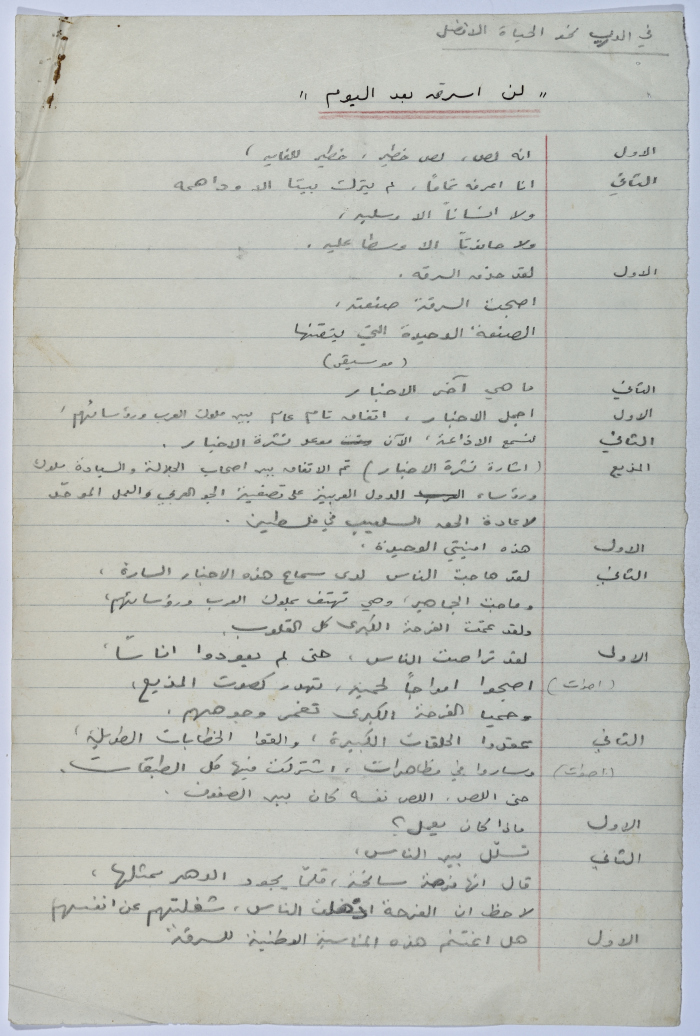 في الدرب نحو الحياة الافضل
" لن اسرق بعد اليوم "
الاول انه لص، لص خطير، خطير للغاية،
الثاني انا اعرفه تماماً، لم يترك بيتا الا وداهمه
ولا انساناً الا وسلبه،
ولا حانوتاً الا وسطا عليه.
الاول لقد حذق السرقه.
اصبحت السرقة صنعته،
الصنعة الوحيدة التي يتقنها
(موسيقى)
الثاني ما هي آخر الاخبار
الاول اجمل الاخبار، اتفاق تام عام بين ملوك العرب ورؤسائهم،
الثاني لنسمع الاذاعة، الآن موعد نشرة الاخبار.
المذيع (اشارة نشرة الاخبار) تم الاتفاق بين اصحاب الجلالة والسيادة ملوك
ورؤساء الدول العربية على تصفية الجو العربي والعمل الموحّد
لاعادة الحق السليب في فلسطين.
الاول هذه امنيتي الوحيدة.
الثاني لقد هاجت الناس لدى سماع هذه الاخبار السارة،
وماجت الجماهير، وهي تهتف بملوك العرب ورؤسائهم،
ولقد عمّت الفرحة الكبرى كل القلوب.
الاول لقد تراصت الناس، حتى لم يعودوا اناسًا،
(اصوات) اصبحوا امواجاً لحمية، تهدر كصوت المذيع،
وحميا الفرحة الكبرى تغمر وجوههم.
الثاني عقدوا الحلقات الكبيرة، والقوا الخطابات الطويلة،
(اصوات) وساروا في مظاهرات، اشتركت فيها كل الطبقات.
حتى اللص، اللص نفسه كان بين الصفوف.
الاول ماذا كان يعمل؟
الثاني تسلّل بين الناس،
قال انها فرصة سانحة، قلّما يجود الدهر بمثلها،
لاحظ ان الفرحة اذهلت الناس، شغلتهم عن انفسهم
الاول هل اغتنم هذه المناسبة الوطنية للسرقة